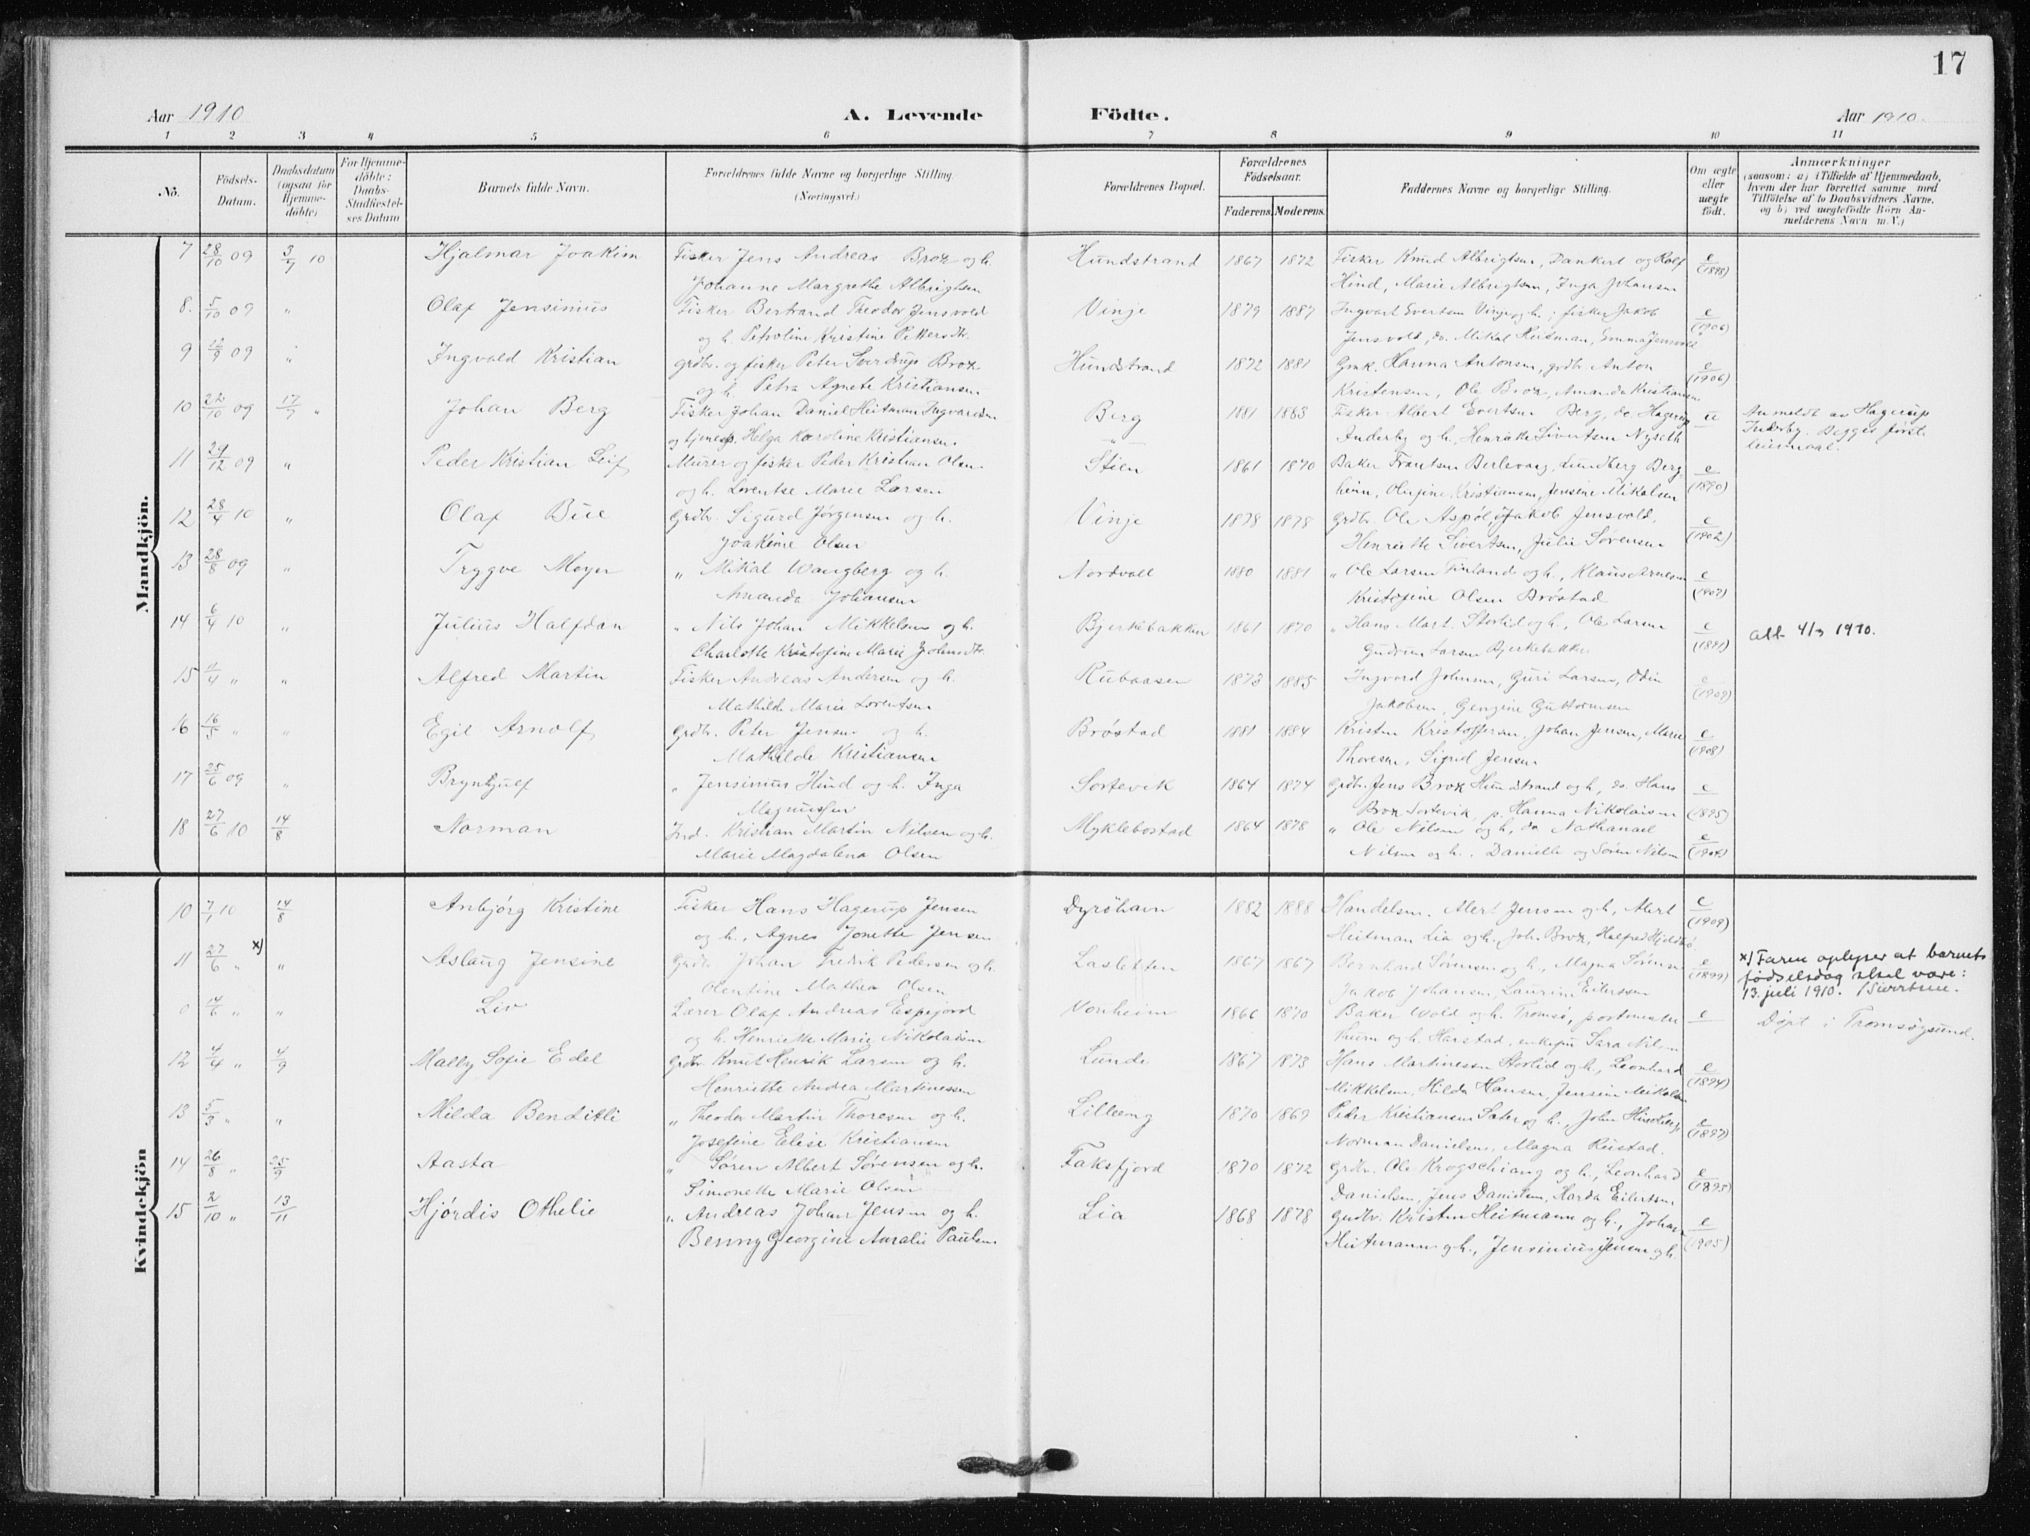 17
Aar 1910 A. Levende Födte. Aar 1910.
1 2 3 4 5 6 7 8 9 10 11
Nö.
Födsels-Datum.
Daabsdatum (ogsaa for Hjemme-döbte)
For Hjemme-döbte: Daabs-Stadfestel-ses Datum
Barnets fulde Navn.
Forældrenes fulde Navne og borgerlige Stilling. (Næringsvei.)
Forældrenes Bopæl.
Forældrenes Födselsaar.
Faderens. Moderens.
Faddernes Navne og borgerlige Stilling.
Om ægte eller uægte födt.
Anmærkninger
(saasom: a) i Tilfælde af Hjemmedaab, hvem der har forrettet samme med Tilföielse af to Daabsvidners Navne, og b) ved uægtefödte Börn An-melderens Navn m.V.)
Mandkjön.
7 28/10 09 3/7 10 Hjalmar Joakim Fisker Jens Andreas Brox og h. Hundstrand 1867 1872 Fisker Knud Albrigtsen, Dankert og Rolf e
Johanne Margrethe Albrigtsen Hind, Marie Albrigtsen, Inga Johansen (1898)
8. 5/10 09 " Olaf Jensinius Fisker Bertrand Theodor Jensvold Vinje 1879 1887 Ingvart Evertsen Vinje og h; fisker Jakob e
og h. Petroline Kristine Jensvold, do. Mikal Heitman, Emma Jensvold (1906)
9 09 " Ingvald Kristian Grdbr. og fisker Peter Sverdrup Brox Hundstrand 1872 1881 Gmk. Hanna Antonsen, grdbr Anton e
og h. Petra Agnete Kristiansen Kristensen, Ole Brox, Amanda Kristiansen (1906)
10 22/10 09 17/7 " Johan Berg Fisker Johan Daniel Heitman Ingvardsen Berg 1881 1883 Fisker Albert Evertsen Berg, do. Hagerup u Anmeldt av Hagerup
og tjenesp. Helga Karoline Kristiansen Anderby og h., Henrikke Sivertsen Nyseth Inderby. Begges første
11 29/12 09 " Peder Kristian Leif Murer og fisker Peder Kristian Olsen Stien 1861 1870 Baker Frantsen Berlevaag, Lundberg Berg e leiermaal.
og h. Lorentse Marie Larsen heim, Olufine Kristiansen, Jensine Mikalsen (1890)
12 28/4 10 " Olaf Bue Grdbr. Sigurd Jørgensen og h. Vinje 1878 1878 Grdbr. Ole Aspøl, Jakob Jensvold, e
Joakime Olsen Henriette Sivertsen, Julie Sørensen (1902)
13 28/8 09 " Tryggve Meyer " Mikal Wangberg og h. Nordvoll 1880 1881 " Ole Larsen Finland og h., Klaus Arnesen e
Amanda Johansen Kristofine Olsen Brøstad (1907)
14 6/4 10 " Julius Halfdan " Nils Johan Mikkelsen og h. Bjerkebakken 1861 1870 " Hans Mart. Storlid og h., Ole Larsen e
Charlotte Kristofine Marie Gudrun Larsen Bjerkebakken (1891) att 4/3 1910.
15 11/4 " " Alfred Martin Fisker Andreas Andersen og h. Rubaasen 1873 1885 Ingvard Johnsen, Guri Larsen, Odin e
Mathilde Marie Lorentsen Jakobsen, Gengine Guttormsen (1909)
16 16/5 " " Egil Arnolf Grdbr. Peter Jensen og h. Brøstad 1881 1884 Kristen Kristoffersen, Johan Jensen, Marie e
Mathilde Kristiansen Thoresen, Sigrid Jensen (1908)
17 25/6 09 " Brynhjulf " Jensinius Hind og h. Inga Sortevik 1864 1874 Grdbr. Jens Brox Hundstrand og h, do. Hans e
Magnussen Brox Sortevik, p. Hanna Nikolaisen (1895)
18 27/6 10 14/8 Norman Ind. Kristian Martin Nilsen og h. Myklebostad 1864 1878 " Ole Nilsen og h, do Nathanael e
Marie Magdalena Olsen Nilsen og h. Danielle og Søren Nilsen
Kvindekjön
10 7/1 10 14/8 Anbjørg Kristine Fisker Hans Hagerup Jensen Dyrøhavn 1882 1888 Handelsm. Alert Jensen og h, Alert e
og h., Agnes Jonette Jensen Heitman Lia og h. Joh. Brox, (1909)
11 27/6 " x) " Aslaug Jensine Grdbr Johan Fredrik Pedersen og h. Lasletten 1867 1867 Bernhard Sørensen og h., Magna Sørensen e x) Faren oplyser at barnets
Olentine Mathea Olsen Jakob Johansen, Laurine Eilertsen (1899) fødselsdag skal være:
0 14/6 " " Liv Lærer Olaf Andreas Espejord Vonheim 1866 1870 Baker Wold og h. Tromsø, postmester e 13. juli 1910. /Sivertsen.
og h. Henriette Marie Nikolaisen og h. Harstad, enkefru Sara Nilsen Døpt i Tromsøysund.
12 4/4 " 4/9 Mally Sofie Edel Grdbr. Knut Henrik Larsen og h. Lunde 1867 1873 Hans Martinessen Storlid og h, Leonhard e
Henriette Andrea Martinessen Mikkelsen, Hilda Hansen, Jensine Mikalsen (1894)
13 5/3 " " Milda Benditli " Theodor Martin Thoresen og h. Lilleeng 1870 1869 Peder Kristiansen Sæter og h., John e
Josefine Elise Kristiansen Norman Danielsen, Magna Rustad. (1897)
14 26/8 " 25/9 Aasta " Søren Albert Sørensen og h. Faksfjord 1870 1872 Grdbr. Ole Krogseng og h., Leonhard e
Simonette Marie Olsen Danielsen, Jens Danielsen, Harda Eilertsen (1895)
15 2/10 " 13/11 Hjørdis Othelie " Andreas Johan Jensen og h. Lia 1868 1878 Gudbr. Kristen Heitmann og h., Johan e
Benny Georgine Auralie Paulsen Heitmann og h., Jensinius Jensen og h. (1905)